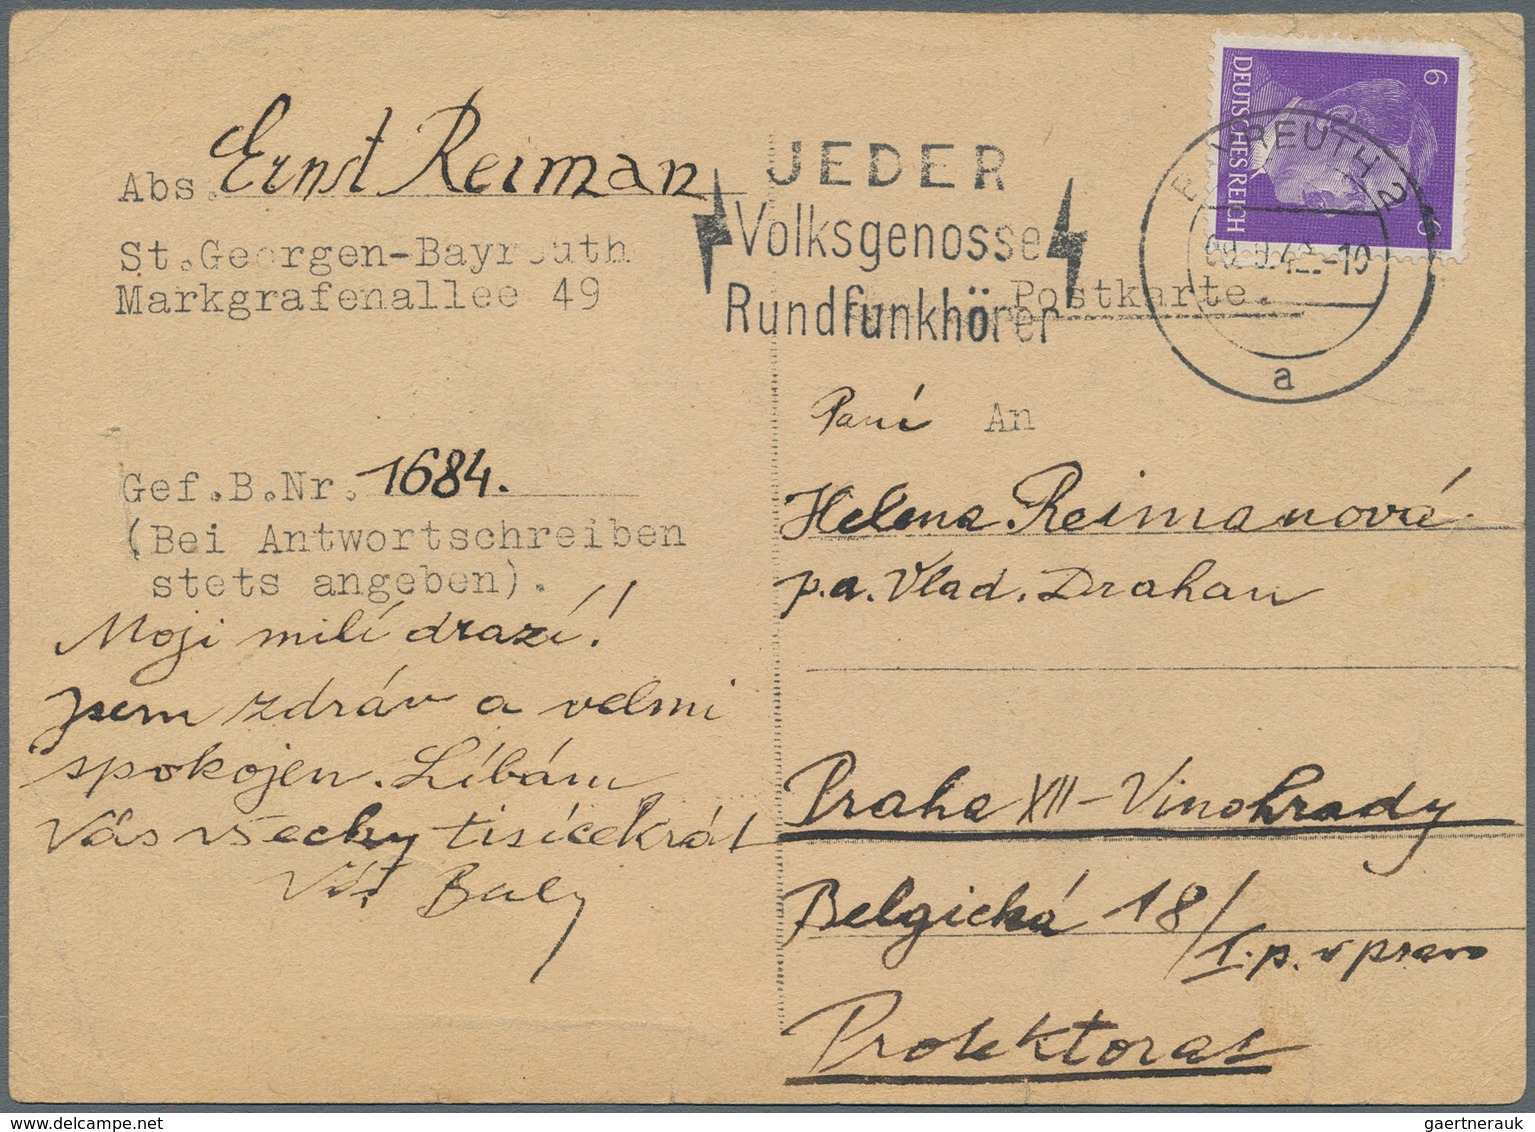 Abs. Ernst Reiman
St.Georgen-Bayreuth
Markgrafenallee 49
Gef.B.Nr. 1684.
(Bei Antwortschreiben
stets angeben).
Moji milí drazí!
jsem zdráv a velmi
spokojen. Líbám
Vás všecky tisícekrát
Váš
JEDER
Volksgenosse
Rundfunkhörer
DEUTSCHES REICH
6
6
BAYREUTH 2
a
Postkarte.
Paní An
Helena Reimanová
p.a. Vlad. Drahan
Praha XII - Vinohrady
Belgická 18/
I.p. v pravo
Protektorat
gaertnerauk @ www.delcampe.net